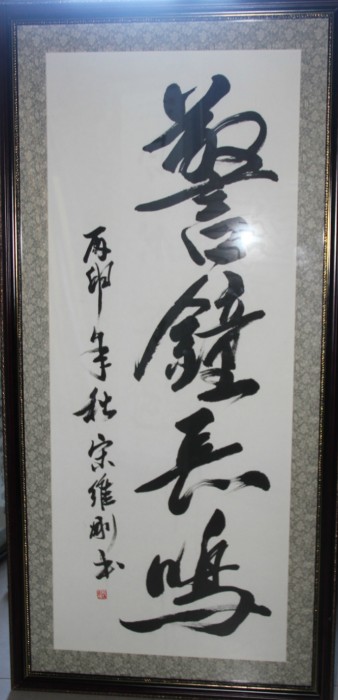 警鐘長鳴
丙申年秋宋維剛书